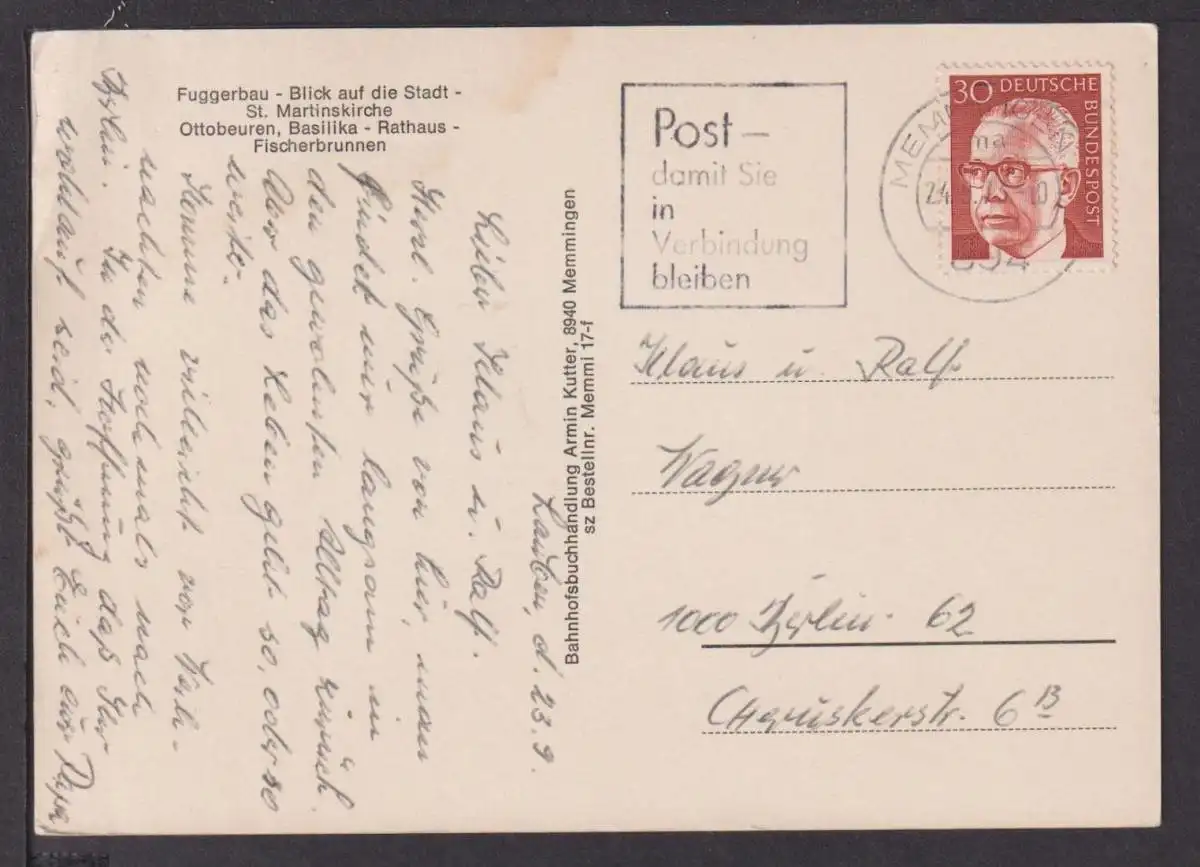 Fuggerbau - Blick auf die Stadt -
St. Martinskirche
Ottobeuren, Basilika - Rathaus -
Fischerbrunnen
Post –
damit Sie
in
Verbindung
bleiben
30 DEUTSCHE
BUNDESPOST
MEMMINGEN
894
Bahnhofsbuchhandlung Armin Kutter, 8940 Memmingen
sz Bestellnr. Memmi 17-f
Lauben, d. 23.9.
Lieber Klaus u. Ralf.
Herzl. Grüße von hier, man
findet nur langsam in
den gewohnten Alltag zurück.
Aber das Leben geht so, oder so
weiter.
Komme vielleicht vor Weih-
nachten nochmals nach
Berlin. In der Hoffnung daß Ihr
wohlauf seid, grüßt Euch euer Papa
Klaus u. Ralf
Wagner
1000 Berlin 62
Cheruskerstr. 6 B